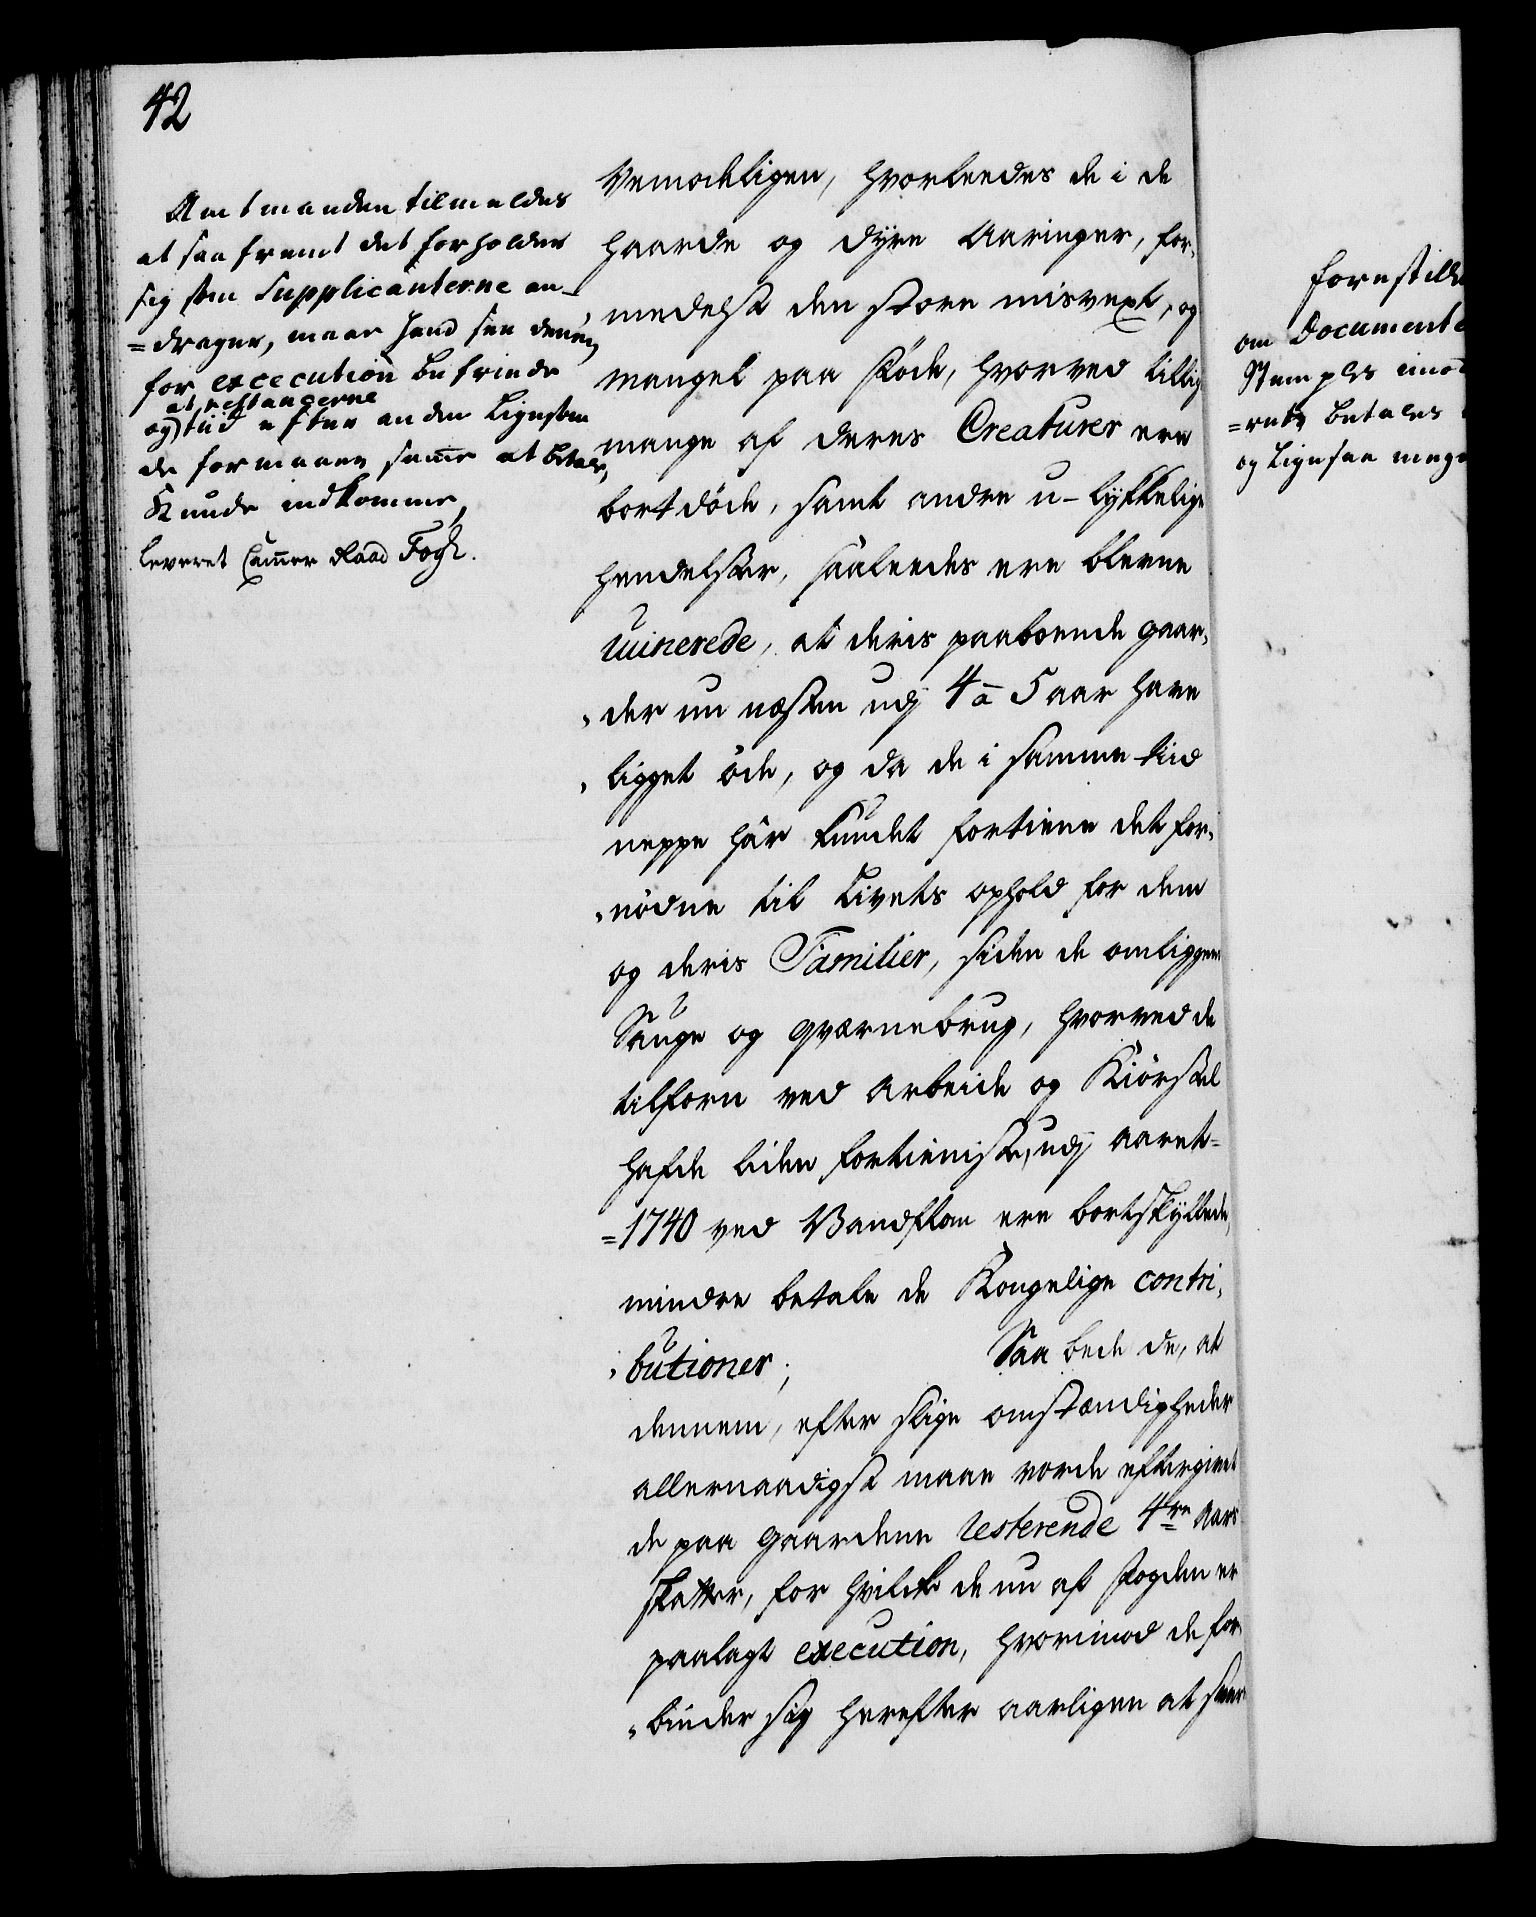 42
Amtmanden tilmeldes
at saafremt det forholder
sig som Supplicanterne an-
=drager, maae hand saa denem
for excecution befriede
at restancerne
og tiid efter anden ligesom
de formaaer samme at betale,
Kunde indkomme,
leveret Cammer Raad Fogh.
Vemodeligen, hvorleedes de i de
haarde og dyre Aaringer, for,
medelst den store misvext, og
mangel paa Föde, hvorved tillig
mange af deres Creaturer ere
bortdöde, samt andre u-lykkelige
hendelser, saaleedes ere blevne
ruinerede, at deris paaboende gaar,
,der nu næsten udj 4 à 5 aar have
,ligget öde, og da de i samme tiid
neppe har kundet fortiene det for,
,nödne til Livets ophold for dem
og deris Familier, siden de omliggen
Sauge og qværnebrug, hvorved de
tilforn ved arbeide og Kiörsel
hafde liden fortieniste, udj aaret
=1740 ved Vandflom ere bortskyllede,
mindre betale de Kongelige contri,
,butioner; Saa bede de, at
dennem, efter slige omstændigheder
allernaadigst maae vorde eftergivet
de paa gaardene resterende 4re Aars
skatter, for hvilke de nu af Fogden er
paalagt execution, hvorimod de for
,binder sig herefter aarligen at svar
forestille
om Documente
Stemples imod
=rets betales
og ligesaa meget